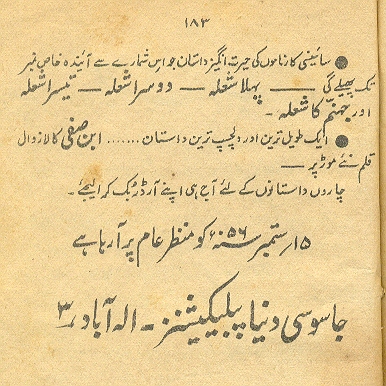 ۱۸۳
● سائینسی کارناموں کی حیرت انگیز داستان جو اس شمارے سے آئیندہ خاص نمبر
تک پھیلے گی ــــــ پہلا شعلہ ــ دوسرا شعلہ ــ تیسرا شعلہ
اور جہنّم کا شعلہ ۔
● ایک طویل ترین اور دلچسپ ترین داستان ....... ابن صفی کا لازوال
قلم نئے موڑ پر ــــ
چاروں داستانوں کے لئے آج ہی اپنے آرڈر بُک کرا لیجئے ۔
۱۵ ستمبر سنہ ۵۶ء کو منظر عام پر آرہا ہے
جاسوسی دنیا پبلیکیشنز ۔ الہ آباد ۳